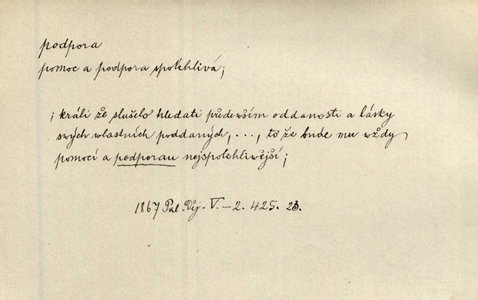 podpora
pomoc a podpora spolehlivá;
; králi že slušelo hledati především oddanosti a lásky
svých vlastních poddaných, ..., to že bude mu vždy
pomocí a podporau nejspolehlivější;
1867 Pal. Děj. V.-2. 425. 23.